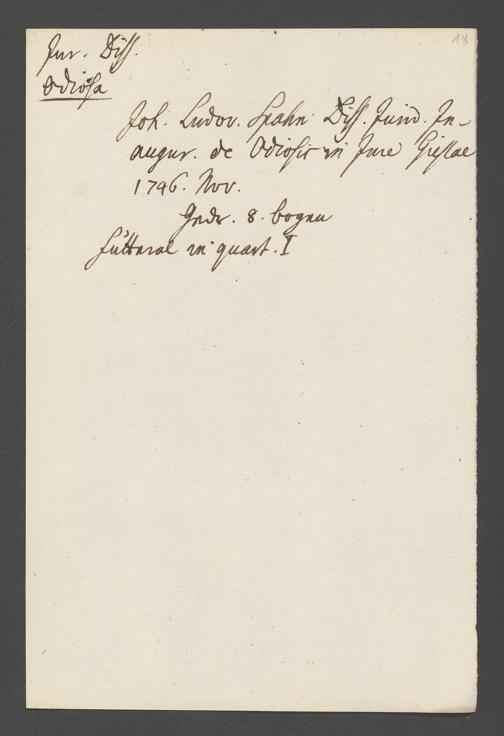 18
Jur. Diss.
Odiosa
Joh. Ludov. Spahn Diss. Jurid. In-
augur. de Odiosis in Jure Gissae
1796. Nov.
Gedr. 8. bogen
Futteral in quart. I